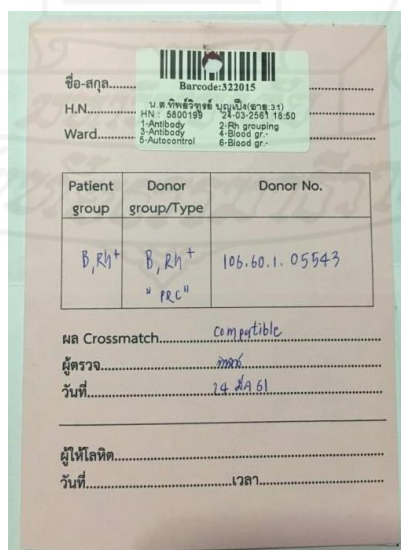 Barcode:322015
ชื่อ-สกุล
น.ส.ทิพย์วิฑูรย์ บุญเป็ง(อายุ:31)
H.N. HN : 5800199 24-03-2561 18:50
1-Antibody 2-Rh grouping
Ward 3-Antibody 4-Blood gr.-
5-Autocontrol 6-Blood gr.-
Patient group Donor group/Type Donor No.
B,Rh+ B,Rh+ "PRC" 106.60.1.05543
ผล Crossmatch compatible
ผู้ตรวจ
วันที่ 24 มีค 61
ผู้ให้โลหิต
วันที่ เวลา